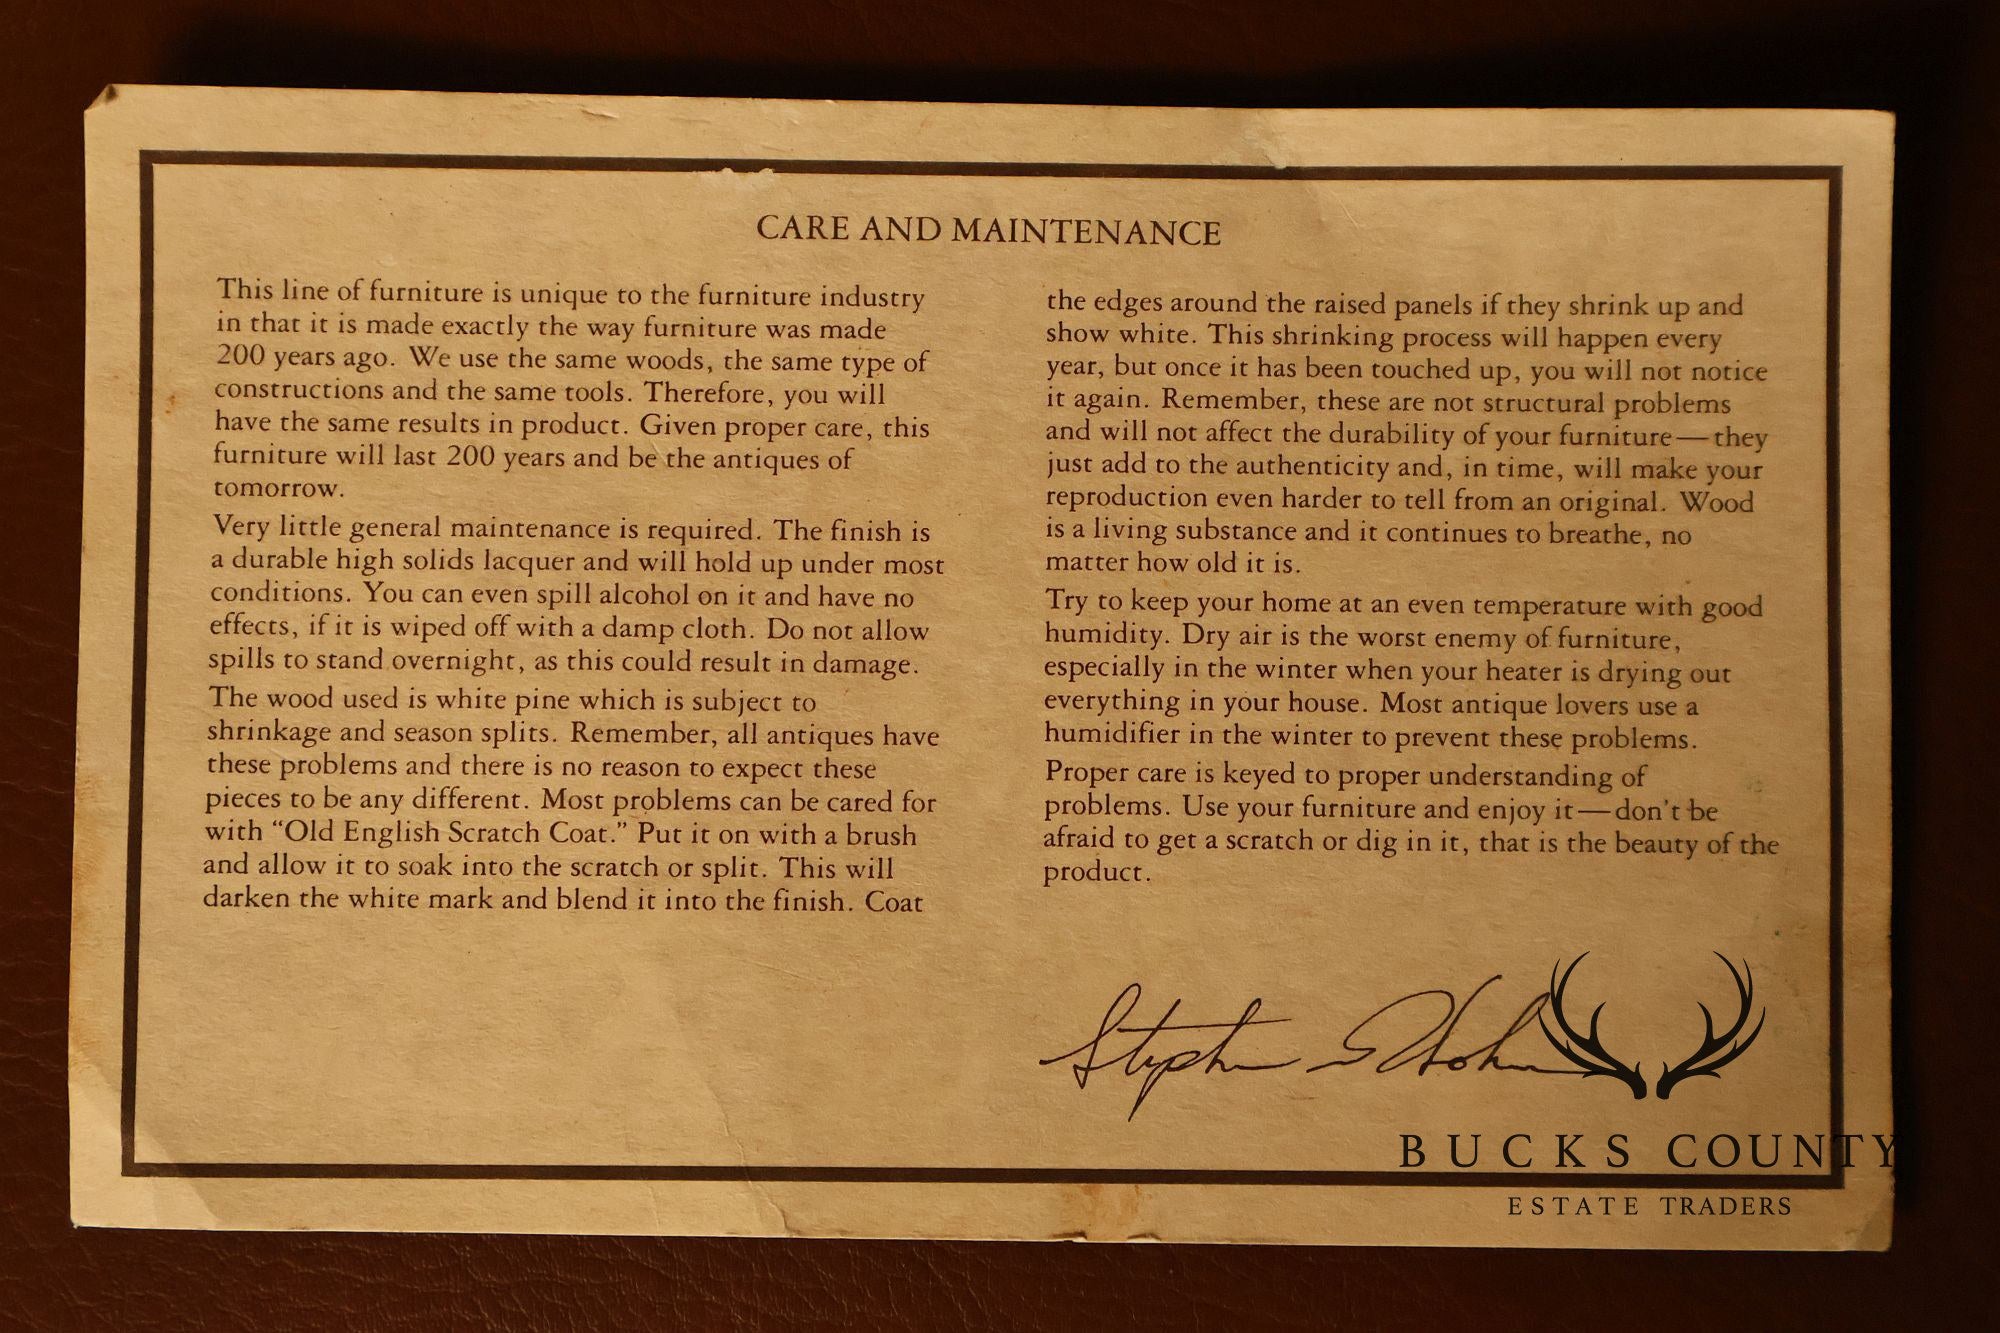 CARE AND MAINTENANCE
This line of furniture is unique to the furniture industry
in that it is made exactly the way furniture was made
200 years ago. We use the same woods, the same type of
constructions and the same tools. Therefore, you will
have the same results in product. Given proper care, this
furniture will last 200 years and be the antiques of
tomorrow.
Very little general maintenance is required. The finish is
a durable high solids lacquer and will hold up under most
conditions. You can even spill alcohol on it and have no
effects, if it is wiped off with a damp cloth. Do not allow
spills to stand overnight, as this could result in damage.
The wood used is white pine which is subject to
shrinkage and season splits. Remember, all antiques have
these problems and there is no reason to expect these
pieces to be any different. Most problems can be cared for
with “Old English Scratch Coat.” Put it on with a brush
and allow it to soak into the scratch or split. This will
darken the white mark and blend it into the finish. Coat
the edges around the raised panels if they shrink up and
show white. This shrinking process will happen every
year, but once it has been touched up, you will not notice
it again. Remember, these are not structural problems
and will not affect the durability of your furniture—they
just add to the authenticity and, in time, will make your
reproduction even harder to tell from an original. Wood
is a living substance and it continues to breathe, no
matter how old it is.
Try to keep your home at an even temperature with good
humidity. Dry air is the worst enemy of furniture,
especially in the winter when your heater is drying out
everything in your house. Most antique lovers use a
humidifier in the winter to prevent these problems.
Proper care is keyed to proper understanding of
problems. Use your furniture and enjoy it—don't be
afraid to get a scratch or dig in it, that is the beauty of the
product.
Stephen
BUCKS COUNTY
ESTATE TRADERS